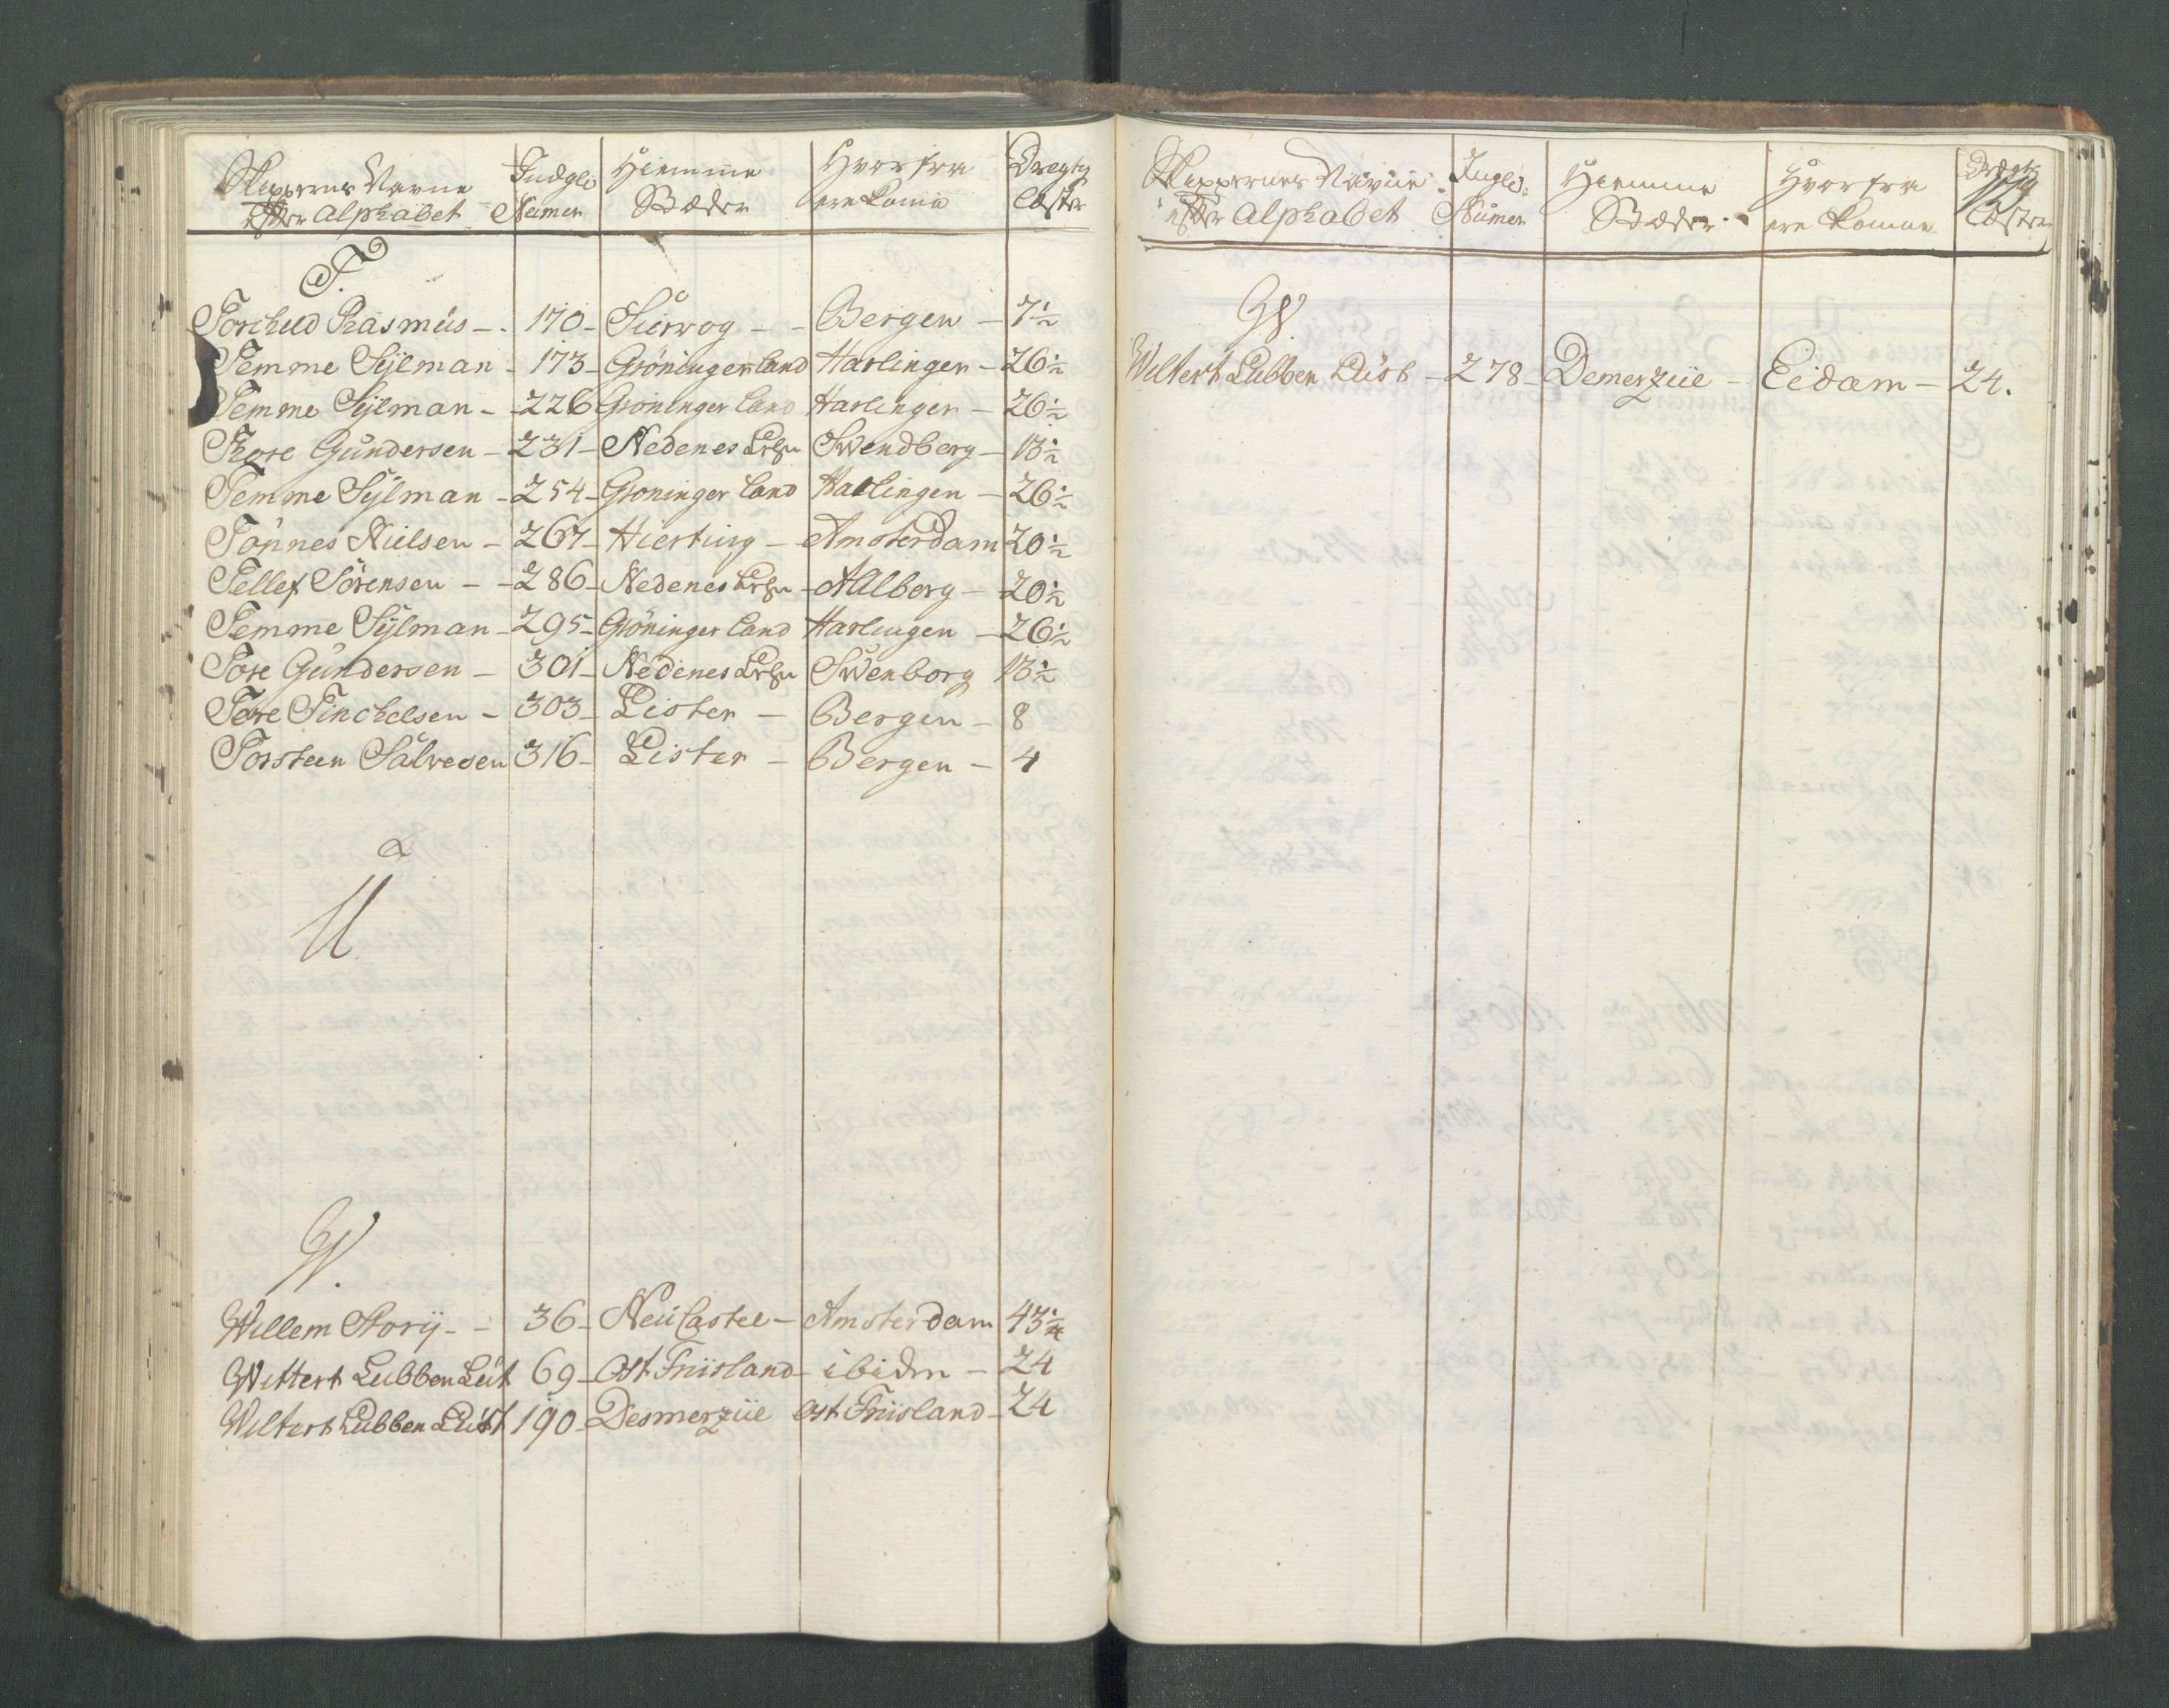 Skippernes Navne Indgls Hiemme Hvorfra Drægtg
efter Alphabet Numer Stæder ere komne Læster
T.
Torchild Rasmus - 170 - Sierwog - Bergen - 7 1/2
Temme Sÿlman - 173 - Gröningerland Harlingen - 26 1/2
Temme Sÿlman - 226 Groninger land Harlingen - 26 1/2
Thore Gundersen - 231 - Nedenes Lehn Swendberg - 13 1/2
Temme Sÿlman - 254 - Groninger land Harlingen - 26 1/2
Tönnes Nielsen - 267 - Hierting - Amsterdam 20 1/2
Tellef Sörensen - 286 - Nedenes Lehn - Aalborg - 20 1/2
Temme Sÿlman - 295 - Gröninger land Harlingen - 26 1/2
Tore Gundersen - 301 - Nedenes Lehn Swenborg 13 1/2
Tore Tinchelsen - 303 - Lister - Bergen - 8
Torsteen Salvesen 316 - Lister - Bergen - 4
U
W.
Willem Storÿ - 36 - Neu Castel - Amsterdam 43 1/4
Wittert Lubben Lüt 69 - Ost Friisland - ibidm - 24
Wiltert Lubben Lüst 190 - Desmerzüe Ost Friisland - 24
Skippernes Navne Inglds: Hiemme Hvorfra Drægtg
efter Alphabet Numer Stæder ere komne Læster
W.
Wiltert Lubben Lüsb - 278 - Demerzüe - Eidam - 24.